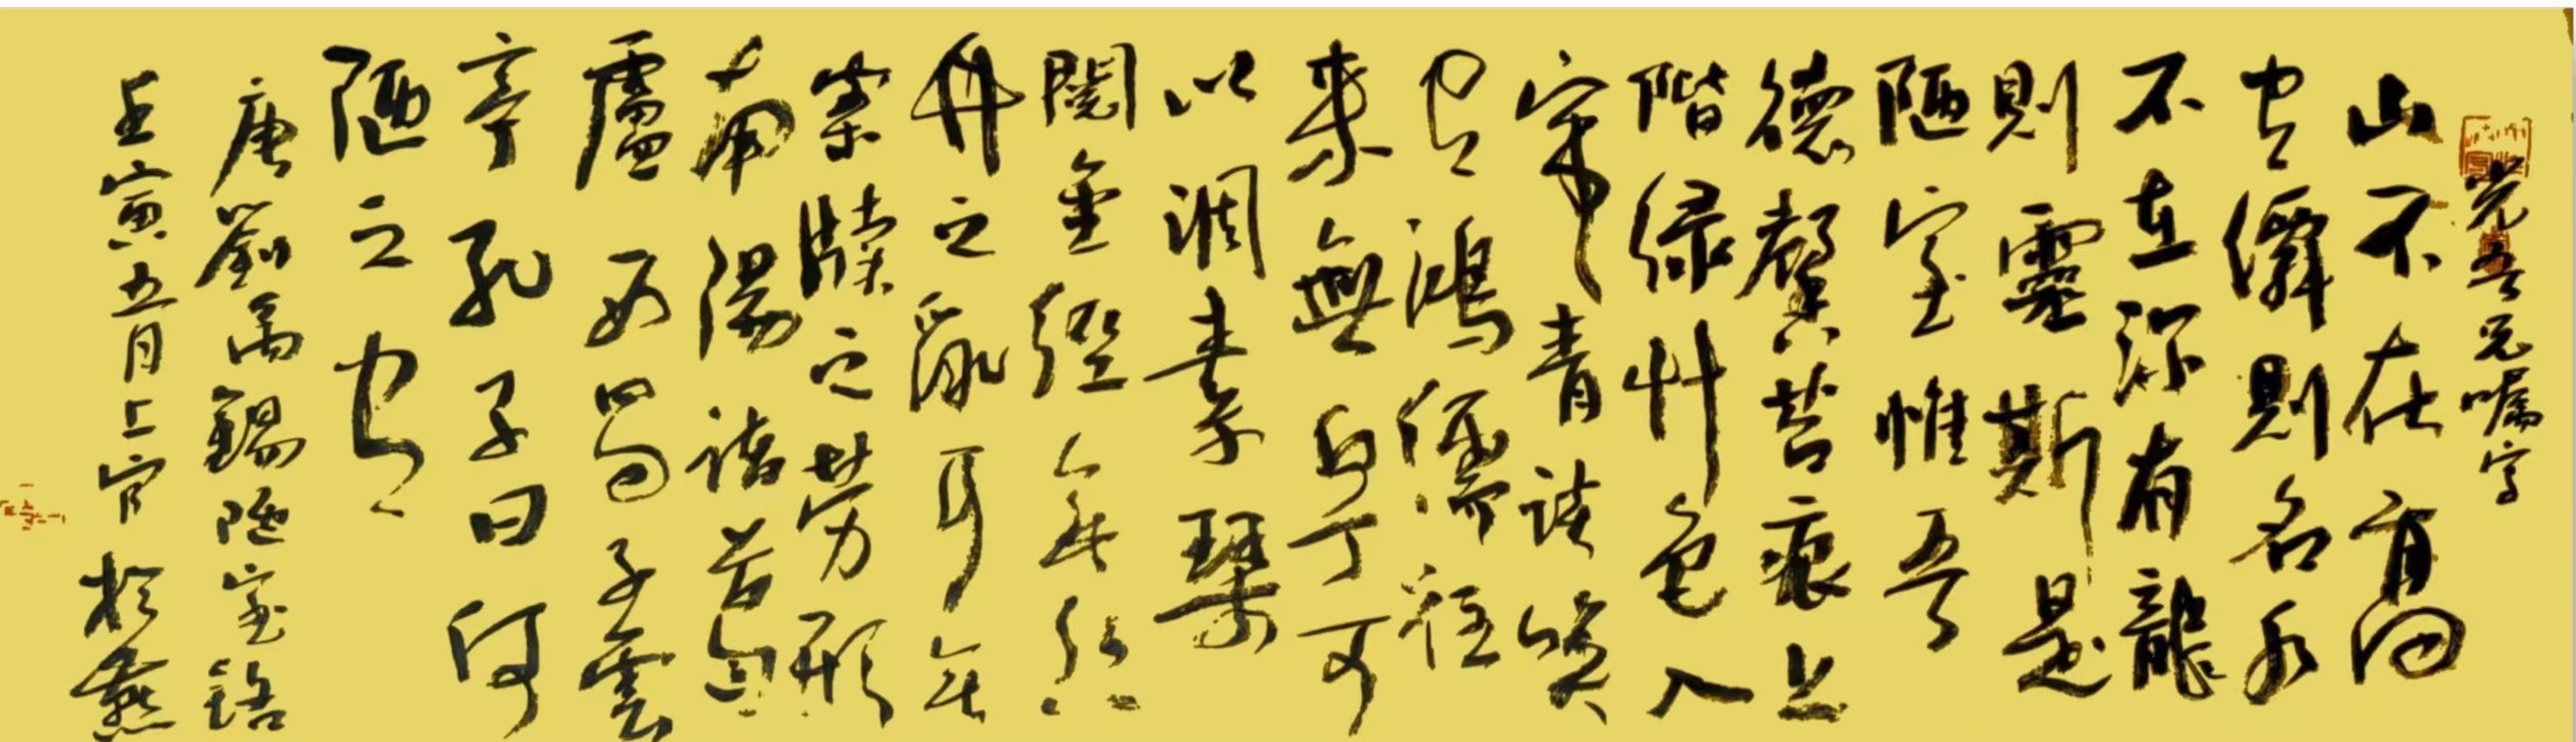 光吾兄嘱字
山不在高
有僊則名水
不在深有龍
則靈斯是
陋室惟吾
德馨苔痕上
階緑艸色入
簾青談笑
有鴻儒往
來無白丁可
以調素琴
閲金經無絲
竹之亂耳無
案牘之勞形
南陽諸葛
廬西蜀子雲
亭孔子曰何
陋之有
唐劉禹錫陋室銘
壬寅五月上官於燕